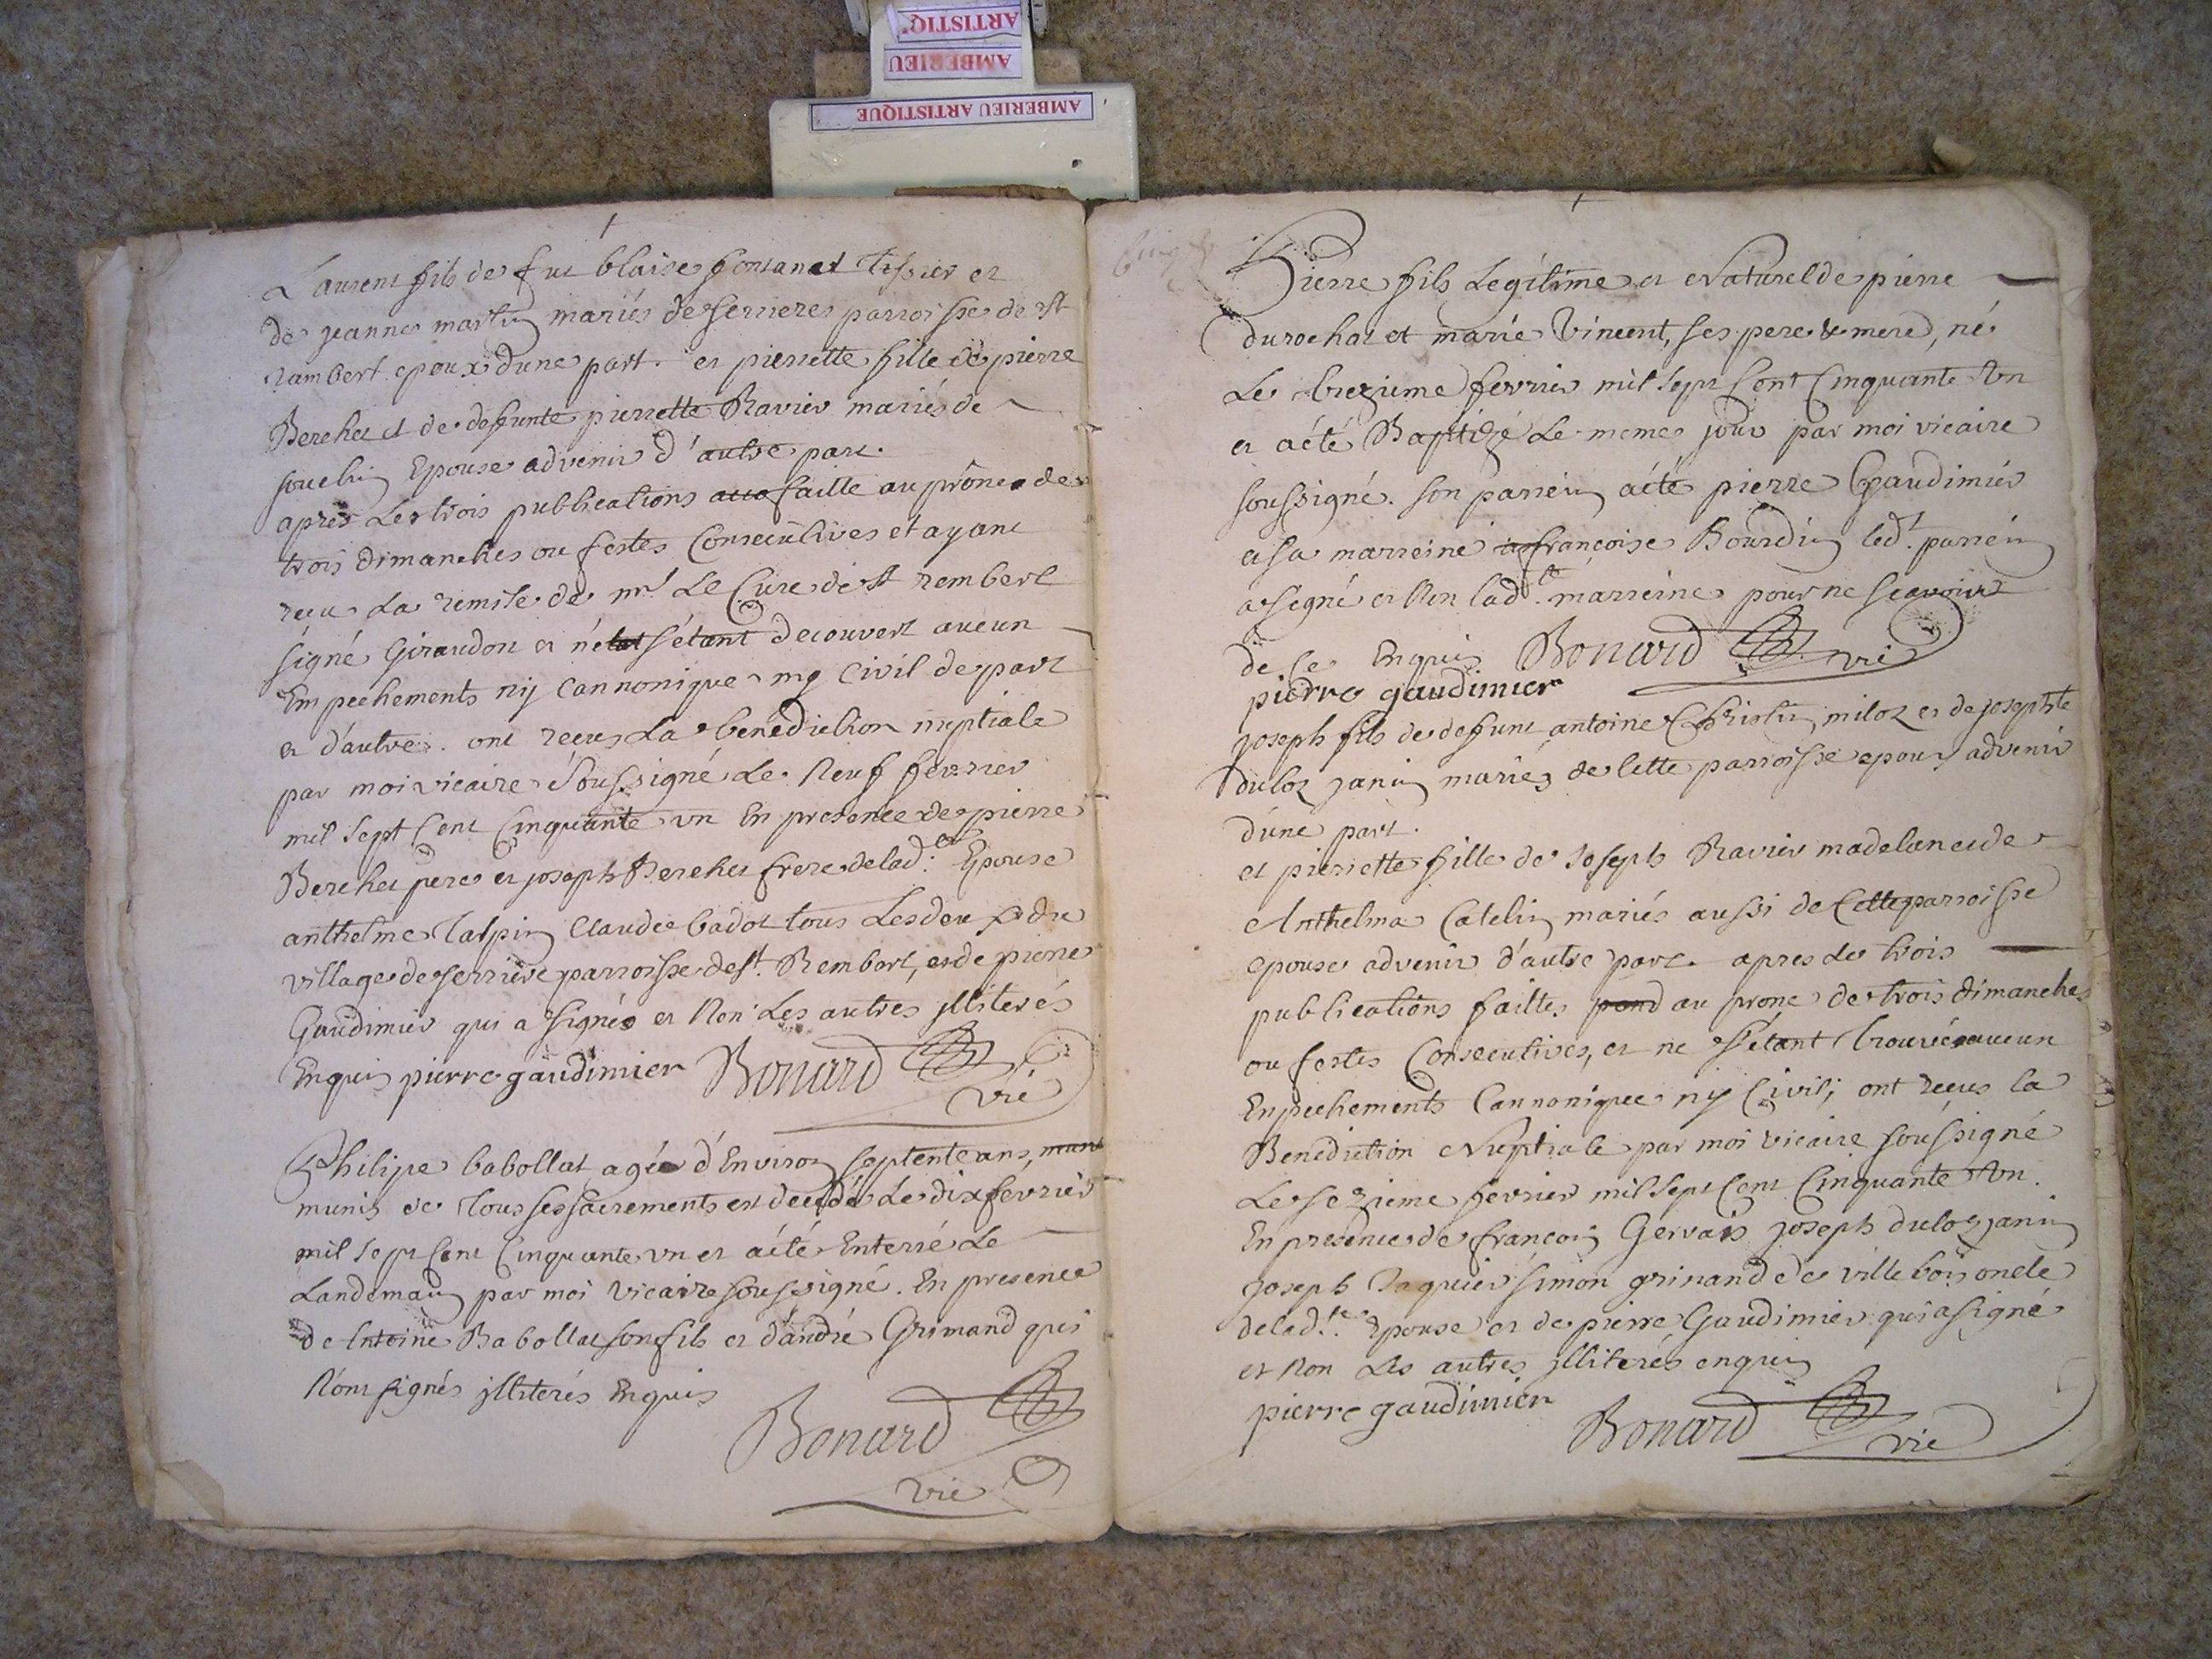 ARTISTIQ
AMBERIEU
AMBERIEU ARTISTIQUE
Laurent fils de fut blaise fontanet tissier et
de jeanne martin mariés de serrieres parroisse de st
rambert epoux dune part. et pierrette fille de pierre
Berchet et de deffunte pierrette Ravier mariés de
souclin Epouse advenir d'autre part.
après Les trois publications faitte au prône de
trois dimanches ou festes Consecutives et ayant
reçu La remise de mr Le Curé de st rembert
signé Giraudon et ne s'étant decouvert aucun
Empechements ny Cannonique ny Civil de part
et d'autre. ont reçus La benediction nuptiale
par moi vicaire soussigné Le Neuf fevrier
mil sept Cent Cinquante un En presence de pierre
Berchet pere et joseph Berchet frere de lad:te Epouse
anthelme Tarpin Claude badot tous Les deux du
village de serriere parroisse de st. Rembert, et de pierre
Gaudimier qui a signés et Non Les autres jlliterés
Enquis pierre gaudimier Bonard
vic
Philipe babollat agée d'Environ septente ans,
munis de Tous ses sacrements est decedé Le dix fevrier
mil sept Cent Cinquante un et a été Enterré Le
Landemain par moi vicaire soussigné. En presence
de Antoine Babollat son fils et d'andré Grimand qui
N'ont signés jlliterés Enquis
Bonard
vic
Pierre fils Legitime et Naturel de pierre
durochat et marie Vincent, ses pere & mere, né
Le trezieme fevrier mil sept Cent Cinquante Un
et a été Baptizé Le meme jour par moi vicaire
soussigné. son parrein a été pierre Gaudimier
et sa marreine françoise Bourdin led.t parrein
a signé et Non lad.te marreine pour ne scavoir
de ce Enquis Bonard vic
pierre gaudimier
joseph fils de deffunt antoine Christin miloz et de josephte
duloz janin mariés de Cette parroisse epoux advenir
d'une part.
et pierrette fille de Joseph Ravier madelane de
Anthelma Catelin mariés aussi de Cette parroisse
epouse advenir d'autre part. apres Les trois
publications faittes au prone de trois dimanches
ou festes Consecutives, et ne s'étant trouvé aucun
Enpechements Cannonique ny Civil; ont reçus la
Benediction Nuptiale par moi vicaire soussigné
Le sezieme fevrier mil sept Cent Cinquante Un.
En presence de françois Gervais joseph duloz janin
joseph Jaquier simon grinand de villebois oncle
de lad.te Epouse et de pierre Gaudimier qui a signé
et Non Les autres jlliterés enquis
pierre gaudimier
Bonard
vic